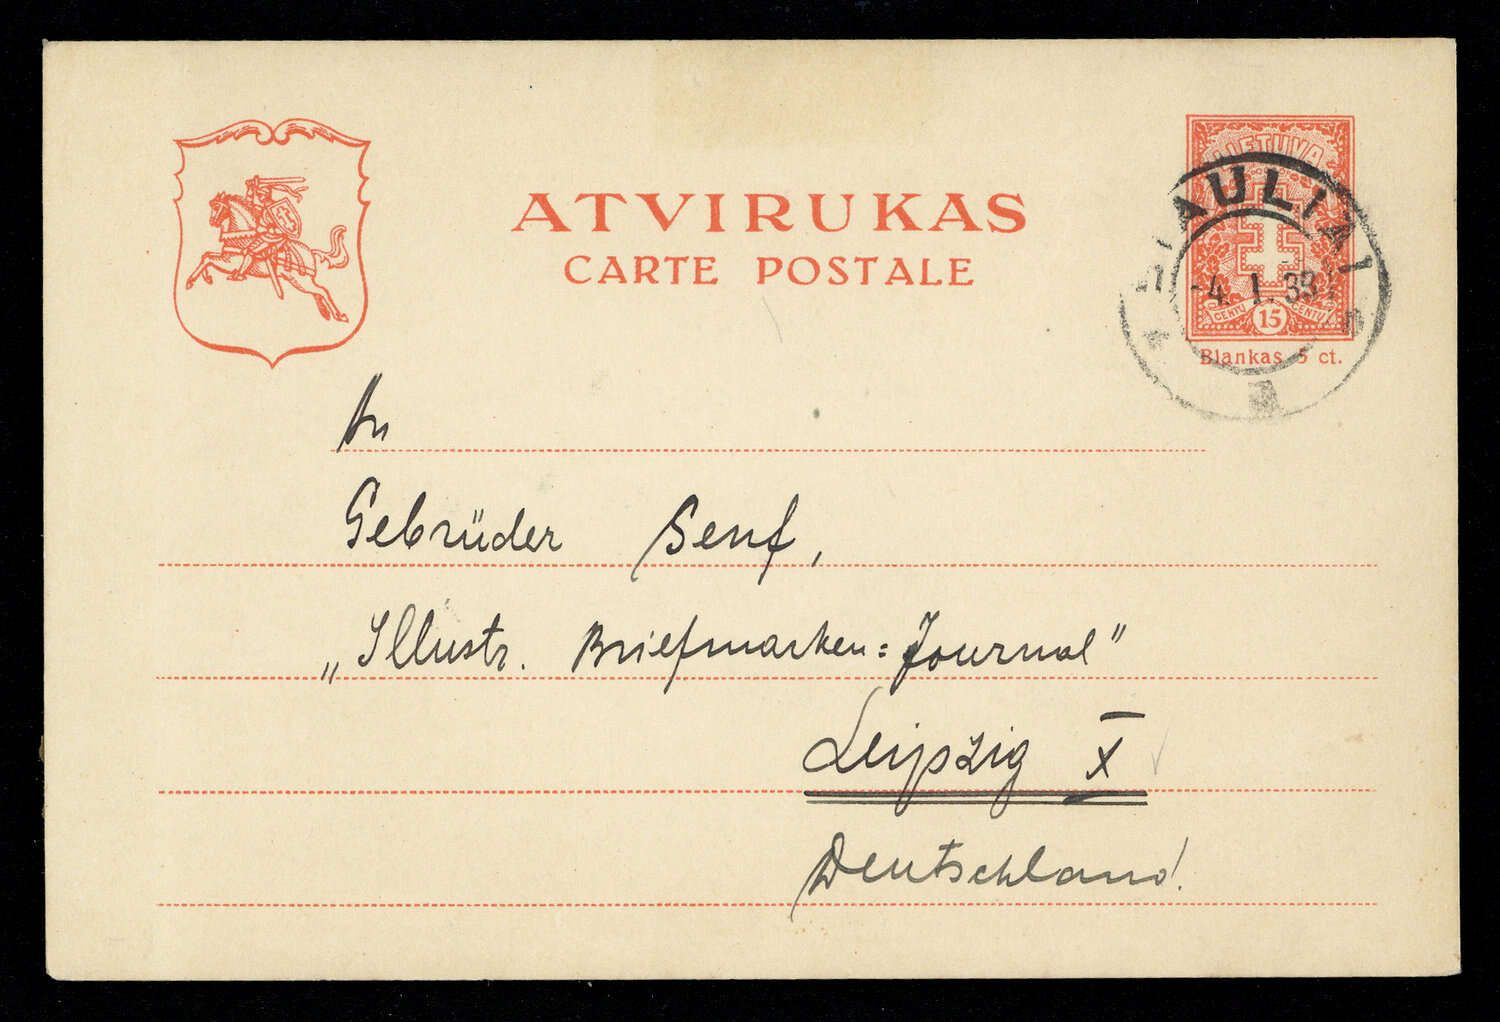 ATVIRUKAS
CARTE POSTALE
LIETUVA
ŠIAULIAI
-4. 1. 33
CENTŲ 15 CENTŲ
Blankas 5 ct.
An
Gebrüder Senf,
„Illustr. Briefmarken=Journal"
Leipzig X
Deutschland!